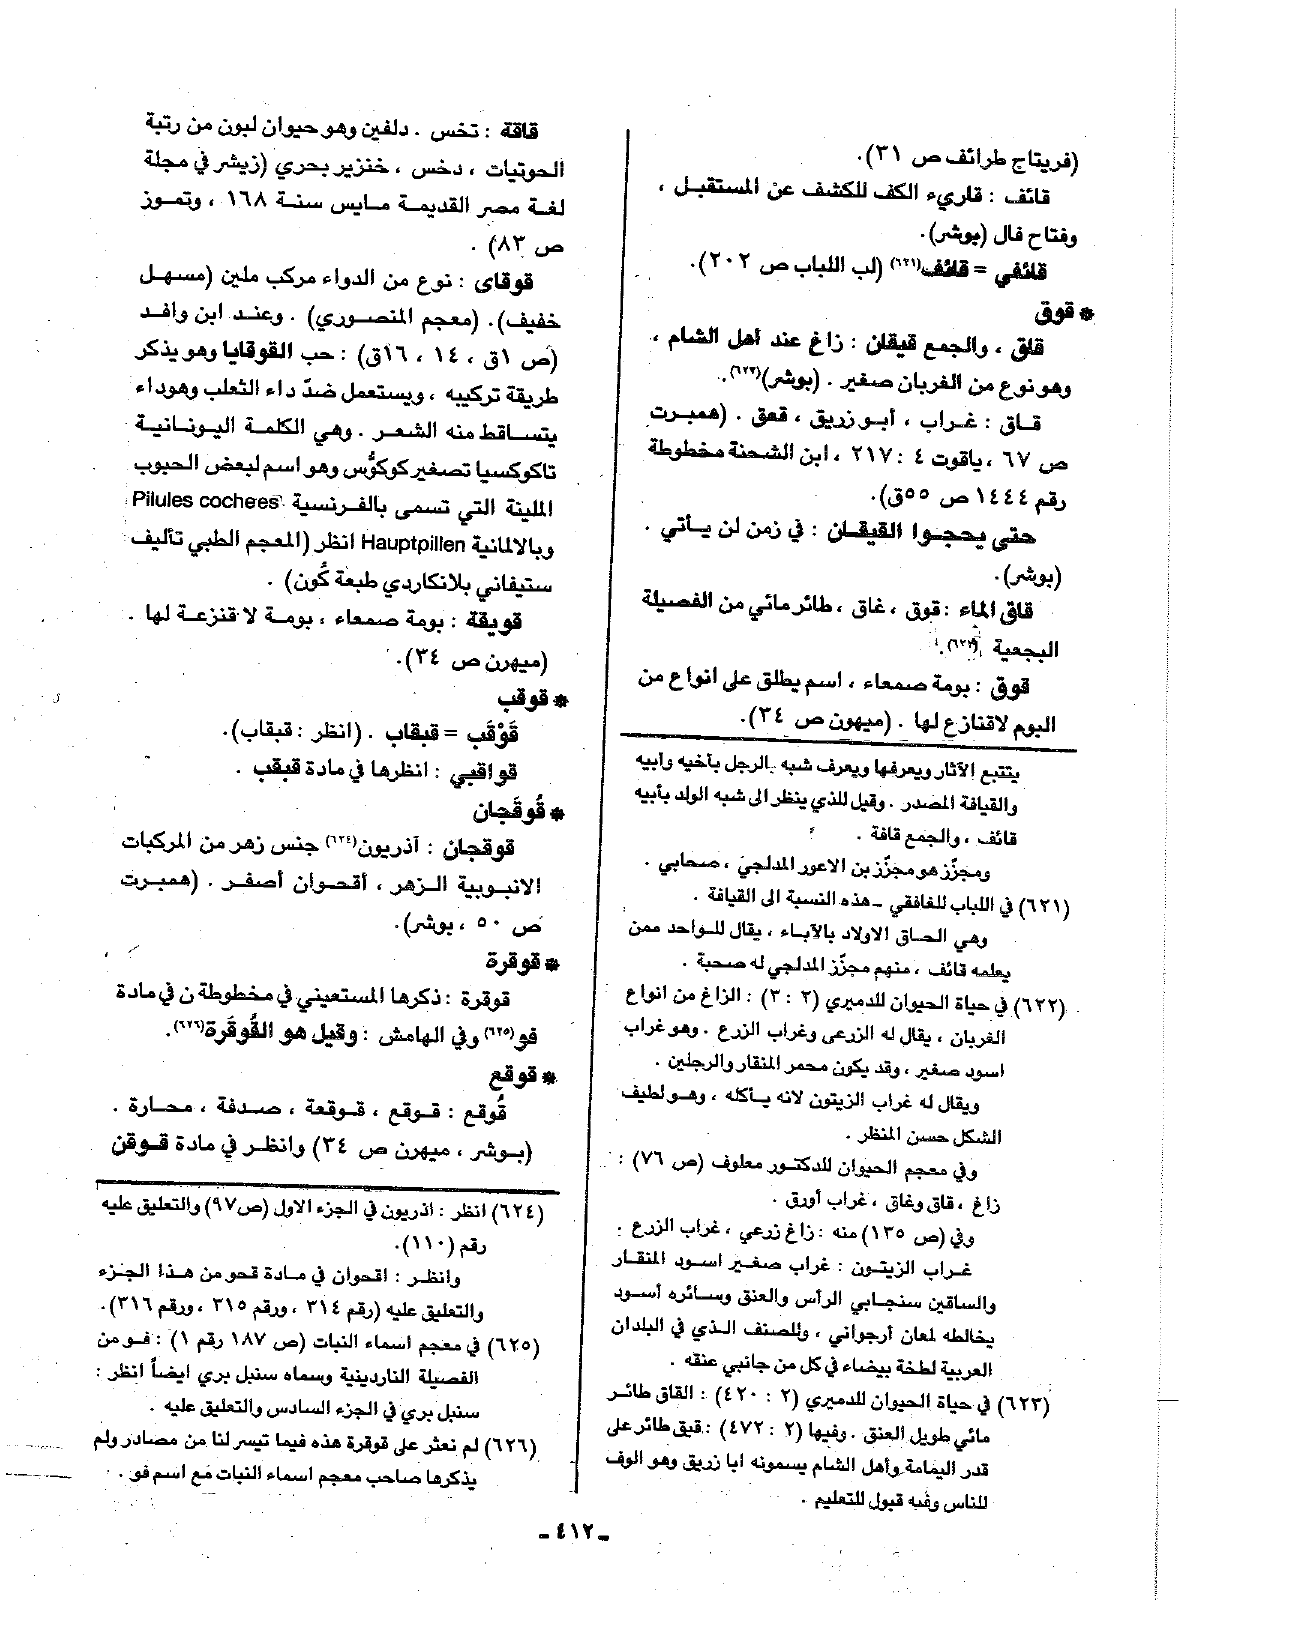 (فريتاج طرائف ص ٣١).
قائف : قاريء الكف للكشف عن المستقبل ،
وفتاح فال (بوشر).
قائفي = قائف(٦٢١) (لب اللباب ص ٢٠٢).
* قوق
قاق ، والجمع قيقان : زاغ عند أهل الشام ،
وهو نوع من الغربان صغير . (بوشر)(٦٢٢).
قاق : غراب ، أبو زريق ، قعق . (همبرت
ص ٦٧ ، ياقوت ٤ : ٢١٧ ، ابن الشحنة مخطوطة
رقم ١٤٤٤ ص ٥٥ق).
حتى يحجوا القيقان : في زمن لن يأتي .
(بوشر).
قاق الماء : قوق ، غاق ، طائر مائي من الفصيلة
البجعية (٦٢٣).
قوق : بومة صمعاء ، اسم يطلق على انواع من
البوم لاقنازع لها . (ميهرن ص ٣٤).
يتتبع الآثار ويعرفها ويعرف شبه الرجل بأخيه وابيه
والقيافة المصدر . وقيل للذي ينظر الى شبه الولد بأبيه
قائف ، والجمع قافة .
ومجزّز هو مجزّز بن الاعور المدلجي ، صحابي .
(٦٢١) في اللباب للغافقي ـ هذه النسبة الى القيافة .
وهي الحاق الاولاد بالآباء ، يقال للواحد ممن
يعلمه قائف ، منهم مجزّز المدلجي له صحبة .
(٦٢٢) في حياة الحيوان للدميري (٢ : ٣) : الزاغ من انواع
الغربان ، يقال له الزرعى وغراب الزرع . وهو غراب
اسود صغير ، وقد يكون محمر المنقار والرجلين .
ويقال له غراب الزيتون لانه يأكله ، وهو لطيف
الشكل حسن المنظر .
وفي معجم الحيوان للدكتور معلوف (ص ٧٦) :
زاغ ، قاق وغاق ، غراب أورق .
وفي (ص ١٣٥) منه : زاغ زرعي ، غراب الزرع .
غراب الزيتون : غراب صغير اسود المنقار
والساقين سنجابي الرأس والعنق وسائره أسود
يخالطه لمعان أرجواني ، وللصنف الذي في البلدان
العربية لطخة بيضاء في كل من جانبي عنقه .
(٦٢٣) في حياة الحيوان للدميري (٢ : ٤٢٠) : القاق طائر
مائي طويل العنق . وفيها (٢ : ٤٧٢) : قيق طائر على
قدر اليمامة وأهل الشام يسمونه ابا زريق وهو الوف
للناس وفيه قبول للتعليم .
قاقة : تخس . دلفين وهو حيوان لبون من رتبة
الحوتيات ، دخس ، خنزير بحري (زيشر في مجلة
لغة مصر القديمة مايس سنة ١٦٨ ، وتموز
ص ٨٣) .
قوقاى : نوع من الدواء مركب ملين (مسهل
خفيف). (معجم المنصوري) . وعند ابن وافد
(ص ١ق ، ١٤ ، ١٦ق) : حب القوقايا وهو يذكر
طريقة تركيبه ، ويستعمل ضدّ داء الثعلب وهو داء
يتساقط منه الشعر . وهي الكلمة اليونانية
تاكوكسيا تصغير كوكوُّس وهو اسم لبعض الحبوب
الملينة التي تسمى بالفرنسية Pilules cochees
وبالالمانية Hauptpillen انظر (المعجم الطبي تأليف
ستيفاني بلانكاردي طبعة كُون) .
قويقة : بومة صمعاء ، بومة لا قنزعة لها .
(ميهرن ص ٣٤).
* قوقب
قَوْقَب = قبقاب . (انظر : قبقاب).
قواقبي : انظرها في مادة قبقب .
* قُوقَجان
قوقجان : آذريون(٦٢٤) جنس زهر من المركبات
الانبوبية الزهر ، أقحوان أصفر . (همبرت
ص ٥٠ ، بوشر).
* قوقرة
قوقرة : ذكرها المستعيني في مخطوطة ن في مادة
فو(٦٢٥) وفي الهامش : وقيل هو القُوقَرة(٦٢٦).
* قوقع
قُوقع : قوقع ، قوقعة ، صدفة ، محارة .
(بوشر ، ميهرن ص ٣٤) وانظر في مادة قوقن
(٦٢٤) انظر : اذريون في الجزء الاول (ص٩٧) والتعليق عليه
رقم (١١٠).
وانظر : اقحوان في مادة قحو من هذا الجزء
والتعليق عليه (رقم ٣١٤ ، ورقم ٣١٥ ، ورقم ٣١٦).
(٦٢٥) في معجم اسماء النبات (ص ١٨٧ رقم ١) : فو من
الفصيلة الناردينية وسماه سنبل بري ايضاً انظر :
سنبل بري في الجزء السادس والتعليق عليه .
(٦٢٦) لم نعثر على قوقرة هذه فيما تيسر لنا من مصادر ولم
يذكرها صاحب معجم اسماء النبات مع اسم فو .
ـ ٤١٢ ـ